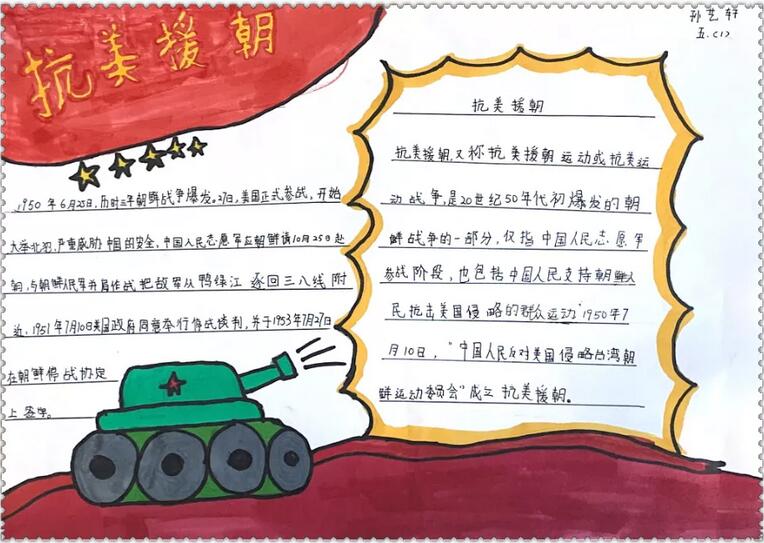 孙艺轩
五.(1)
抗美援朝
1950年6月25日,历时三年朝鲜战争爆发。27日,美国正式参战,开始
大举北犯,严重威胁中国的安全,中国人民志愿军应朝鲜请10月25日赴
朝,与朝鲜人民军并肩作战把敌军从鸭绿江逐回三八线附
近,1951年7月10日美国政府同意举行停战谈判,并于1953年7月27日
在朝鲜停战协定
上签字。
抗美援朝
抗美援朝,又称抗美援朝运动或抗美运
动战争,是20世纪50年代初爆发的朝
鲜战争的一部分,仅指中国人民志愿军
参战阶段,也包括中国人民支持朝鲜人
民抗击美国侵略的群众运动"1950年7
月10日,"中国人民反对美国侵略台湾朝
鲜运动委员会"成立抗美援朝。